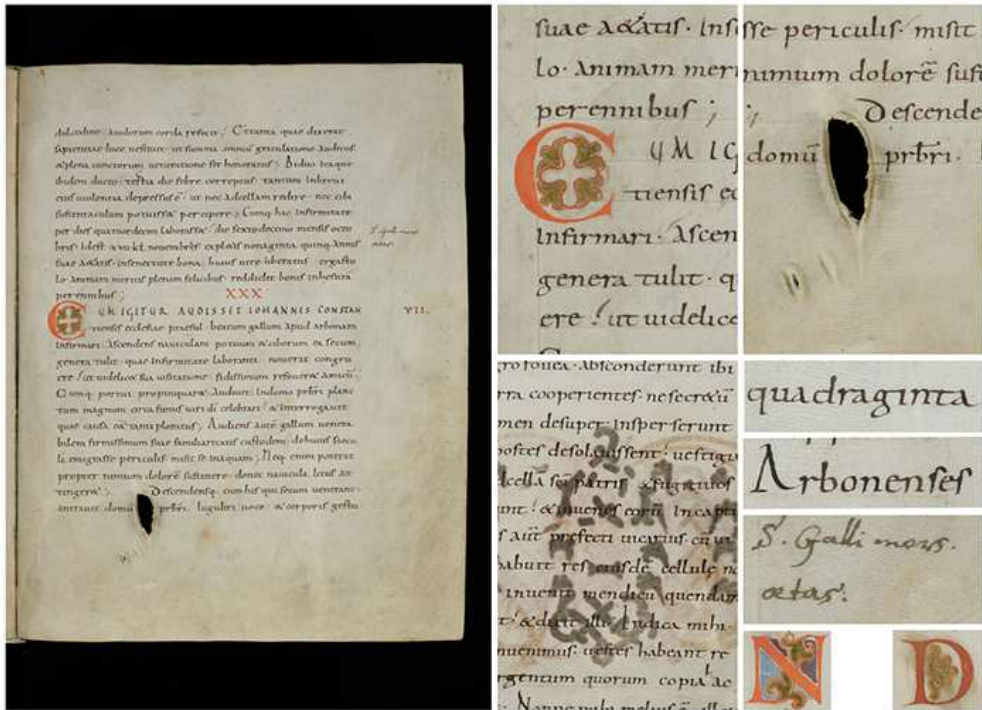 dulcedine Auditorum corda refecit. Et tanta quae dixerat
sapientiae luce ut summa omniū gratulatione Auditus
&plena cunctorum ueneratione sit honoratus; Biduo itaque
ibidem ducto tertia die febre correptus tantum Inbreui
eius uiolentia depressus ē ut nec adcellam redire nec cibi
sustentaculum potuiss& percipere; Cumq. hac Infirmitate
per dies quatuordecim laborass& die sextodecimo mensis octo
bris Idest xvii kł nouembris expletis nonaginta quinq. Annis
suae A&atis. Insenectute bona huius nece liberatus ergastu
lo. Animam meritis plenam felicibus reddidit bonis inhesurā
perennibus; XXX
CUM IGITUR AUDISSET IOHANNIS CONSTAN VII.
tiensis ecclesiae praesul beatum gallum Apud arbonam
Infirmari. Ascendens nauiculam potuum &ciborum ex secum
genera tulit. quae Infirmitate laboranti nouerat congru
ere! ut uidelic& sua uisitatione fidissimum refouer& Amicū.
Cumq. portui propinquar& Audiuit Indomo prƀri planc
tum magnum circa funus uiri dī celebrari. &interrogauit
quae causa eēt tanti ploratus; Audiens Autē gallum uenera
bilem firmissimum suae familiaritatis custodem dehuius saecu
li emigrasse periculis. misit se inaquam; Neq. enim poterat
propter nimium dolorē sustinere. donec nauicula litus At
tinger&; Descendensq. cum his qui secum uenerant
intrauit domū prƀri. lugubri uoce &corporis gestu
S. Galli mors.
ætas.
suae A&atis. Ins
lo. Animam meri
perennibus;
C UM IG
tiensis ec
Infirmari. Ascen
genera tulit. q
ere! ut uidelice
sse periculis. misit
nimium dolorē sust
; Descende
domū prƀri.
gro fouea. Absconderunt ibi
rra cooperientes. nesecr&ū
men desuper. Insperserunt
ostes desolauissent. uestigia
dcella sc̄i patris &fugitiuos
unt! &inuenes eorū Incapti
s aūt prefecti uicarius. cū ui
habuit res eiusdē cellule ne
inuenit mendicū quendam
t. &dixit illi. Indica mihi
nuenimus. uestes habeant re
rgentum quorum copia ac
quadraginta
Arbonenses
S. Galli mors.
ætas.
N D